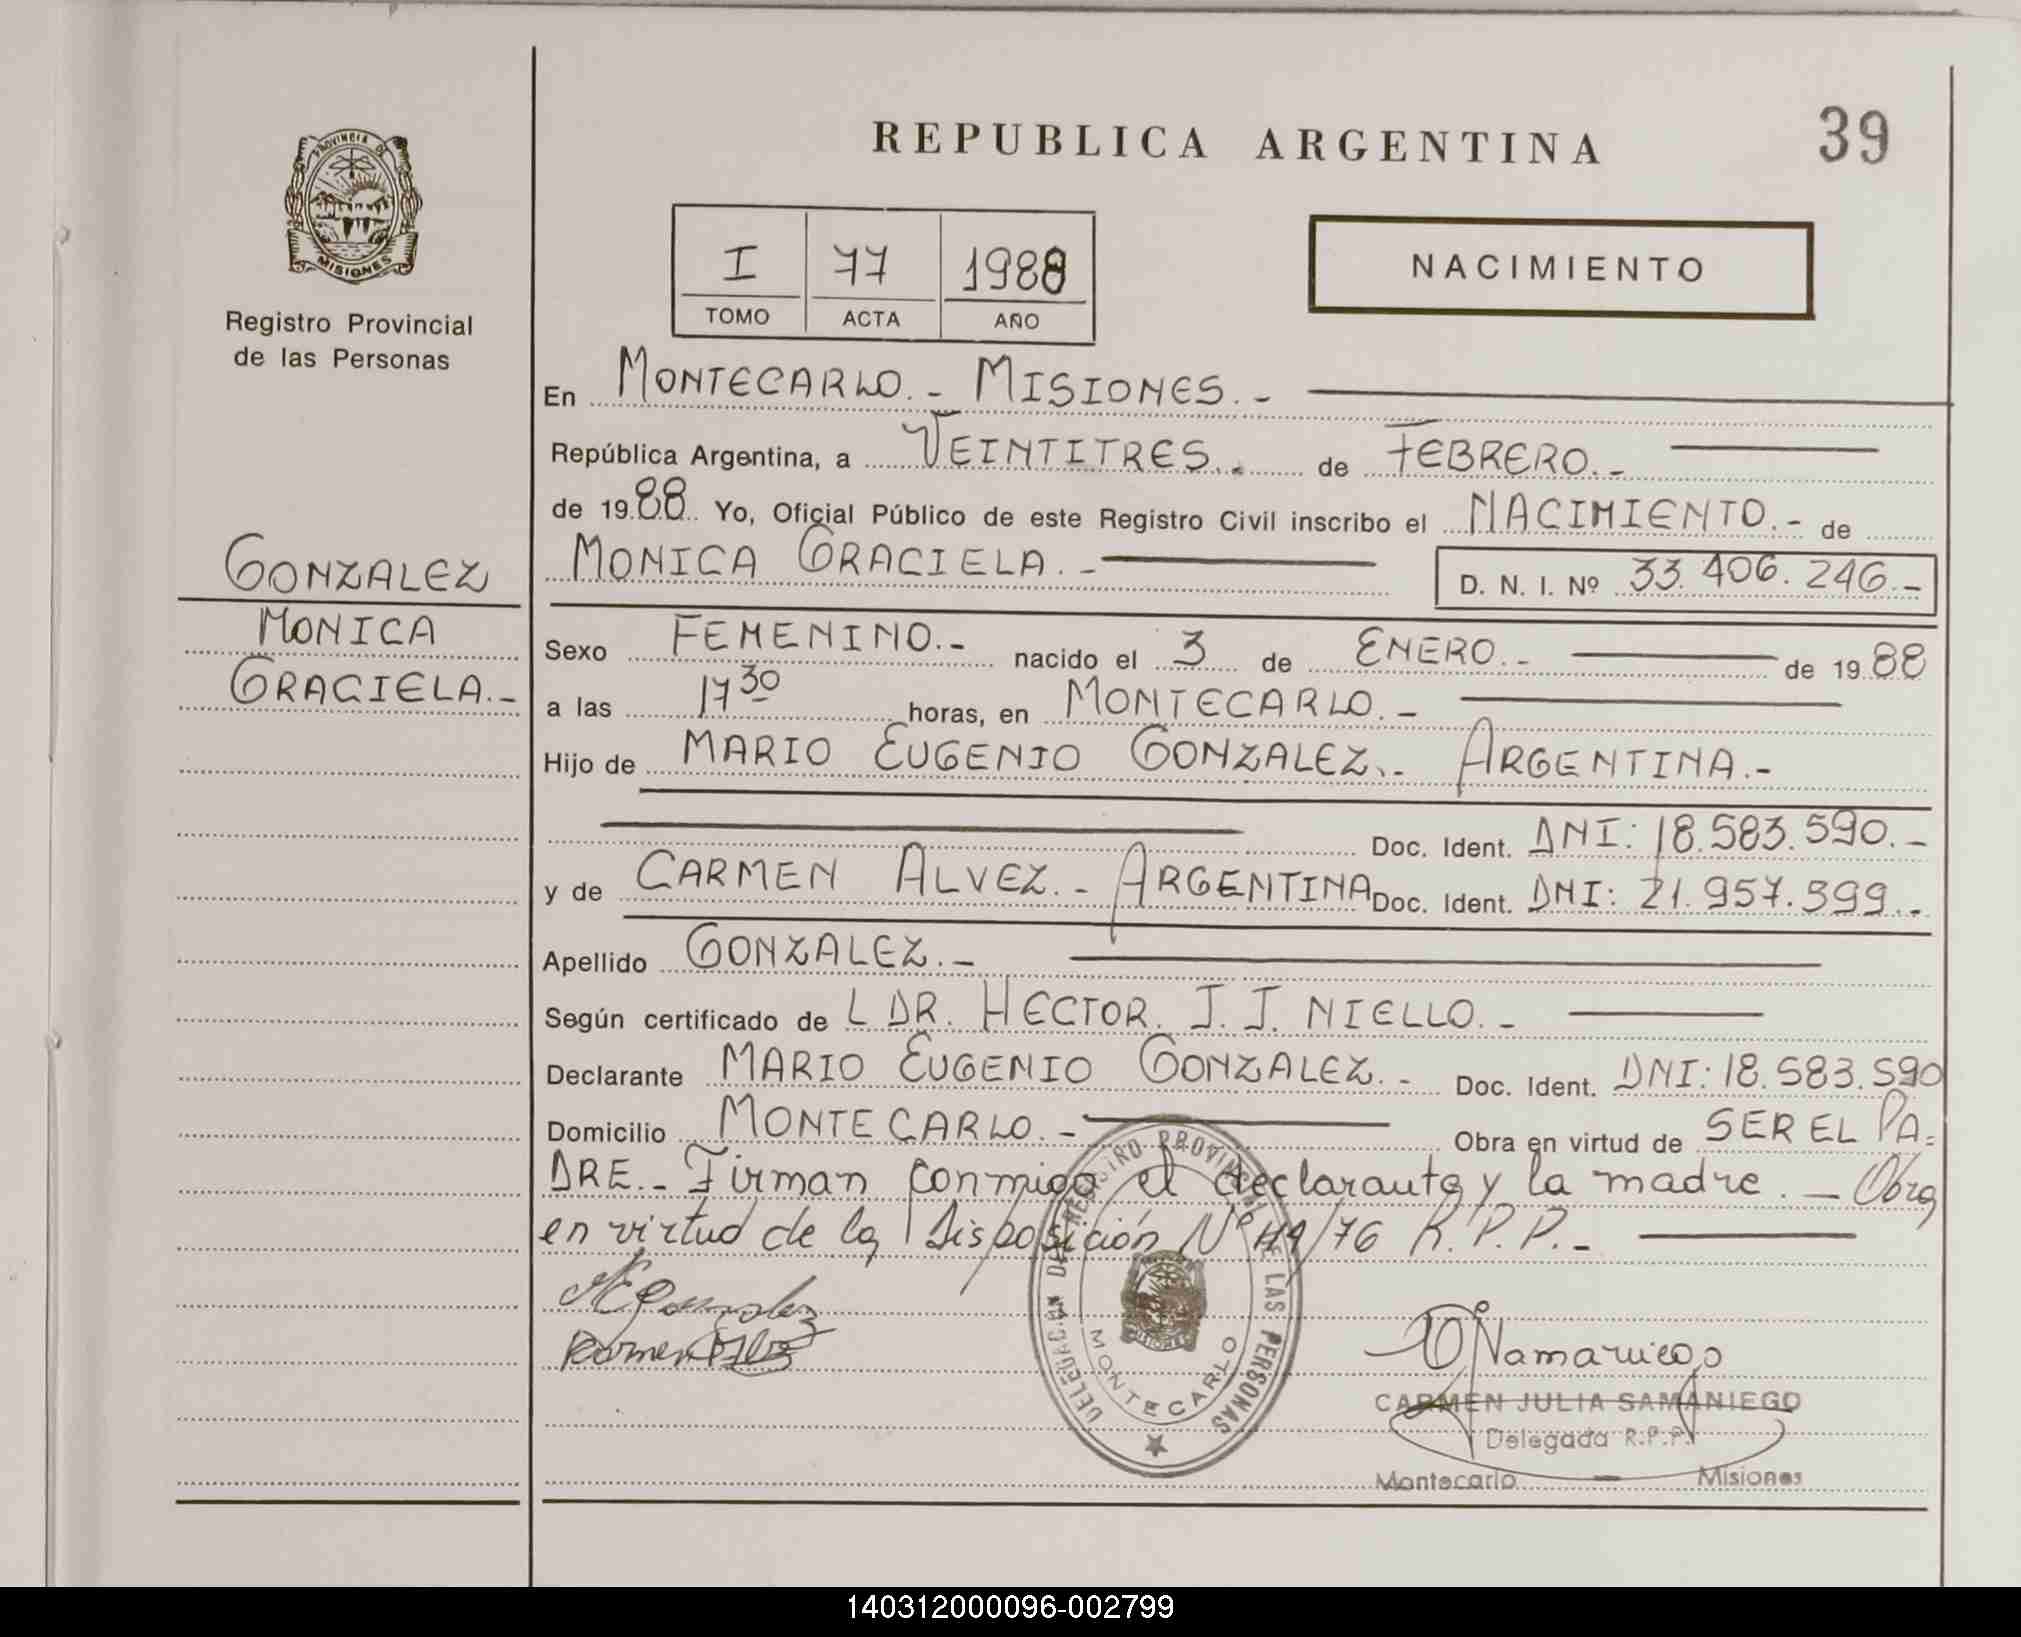 REPUBLICA ARGENTINA
39
PROVINCIA DE
MISIONES
Registro Provincial
de las Personas
I 77 1988
TOMO ACTA AÑO
NACIMIENTO
En MONTECARLO.- MISIONES.-
República Argentina, a VEINTITRES.- de FEBRERO.-
de 1988 Yo, Oficial Público de este Registro Civil inscribo el NACIMIENTO.- de
GONZALEZ
MONICA
GRACIELA.-
MONICA GRACIELA.- D. N. I. Nº 33.406.246.-
Sexo FEMENINO.- nacido el 3 de ENERO.- de 1988
a las 17 30 horas, en MONTECARLO.-
Hijo de MARIO EUGENIO GONZALEZ.- ARGENTINA.-
Doc. Ident. DNI: 18.583.590.-
y de CARMEN ALVEZ.- ARGENTINA Doc. Ident. DNI: 21.957.399.-
Apellido GONZALEZ.-
Según certificado de L DR. HECTOR. J. J. NIELLO.-
Declarante MARIO EUGENIO GONZALEZ.- Doc. Ident. DNI: 18.583.590
Domicilio MONTECARLO.- Obra en virtud de SER EL PA=
DRE.- Firman conmigo el declarante y la madre.- Obra
en virtud de la Disposición Nº 49/76 R.P.P.-
DELEGACION DEL REGISTRO PROVINCIAL DE LAS PERSONAS
MONTECARLO
CARMEN JULIA SAMANIEGO
Delegada R.P.P.
Montecarlo - Misiones
140312000096-002799